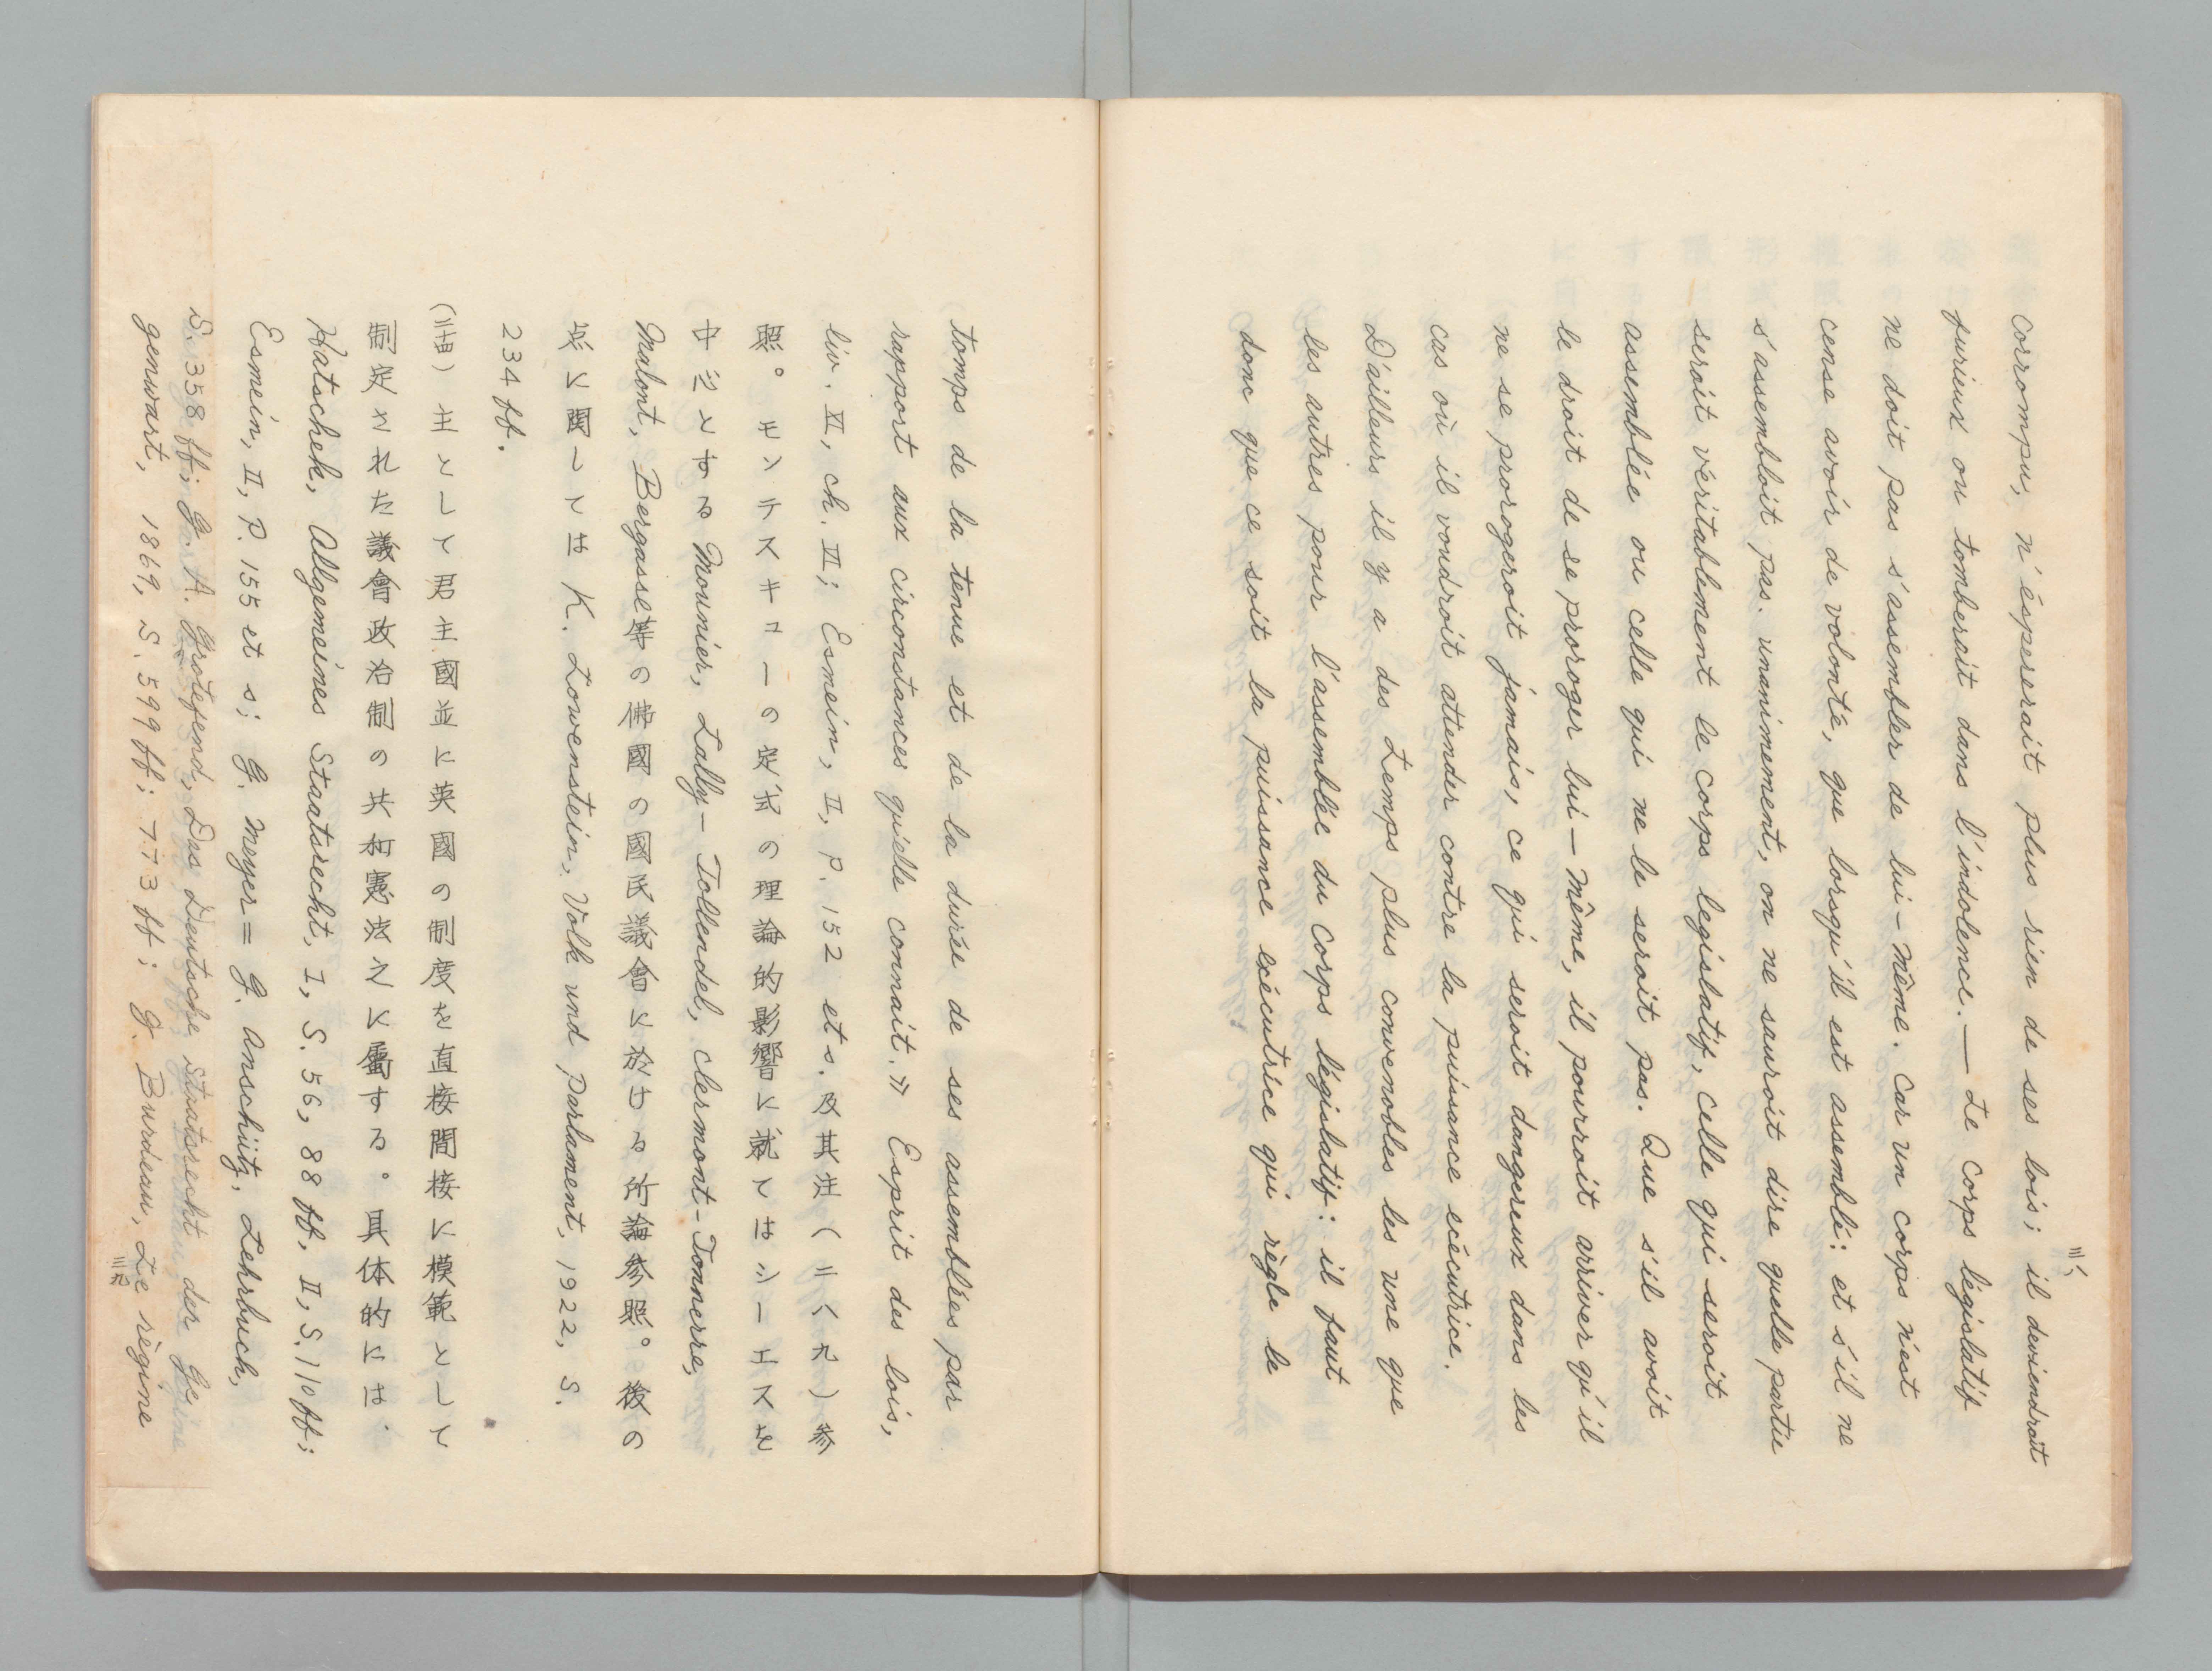 corrompu, n'éspererait plus rien de ses lois; il deviendrait
furieux ou tomberait dans l'indolence. — Le corps législatif
ne doit pas s'assembler de lui-même. Car un corps n'est
cense avoir de volonté, que lorsqu'il est assemblé: et s'il ne
s'assembloit pas. unanimement, on ne sauroit dire quelle partie
seroit véritablement le corps legislatif, celle qui seroit
assemblée ou celle qui ne le seroit pas. Que s'il avoit
le droit de se proroger lui-même, il pourroit arriver qu'il
ne se prorogeroit jamais, ce qui seroit dangereux dans les
cas où il voudroit attender contre la puissance exécutrice.
D'ailleurs il y a des Lemps plus convenobles les une que
les autres pour l'assemblée du corps législatif: il faut
donc que ce soit la puissance exécutrice qui règle le
三八
tomps de la tenue et de la durée de ses assemblées par
rapport aux circonstances qu'elle connait.» Esprit des lois,
liv. XI, ch. VI; Esmein, II, P. 152 et s. 及其注(二八九)参
照。モンテスキューの定式の理論的影響に就てはシーエスを
中心とする Mounier, Lally-Tollendel, clermont-Tonnerre,
Malont, Bergasse等の佛國の國民議會に於ける所論参照。後の
点に関しては K. Lowenstein, Volk und Parlament, 1922, S.
234 ff.
(三四)主として君主國並に英國の制度を直接間接に模範として
制定された議會政治制の共和憲法之に屬する。具体的には.
Hatschek, Allgemeines Staatsrecht, I, S. 56, 88 ff, II, S. 110 ff;
Esmein, II, P. 155 et s; G. Meyer= G. Anschütz, Lehrbuch,
S. 358 ff; G. A. Grotefend, Das Deutsche Staatsrecht der Ge
genwart, 1869, S. 599 ff; 773 ff; G. Burdeau, Le règine
三九